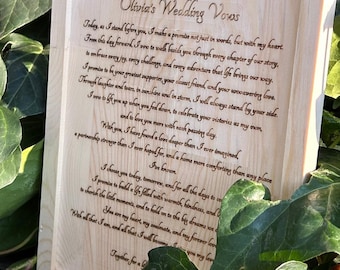 Olivia's Wedding Vows
Today, as I stand before you, I make a promise not just in words, but with my heart.
From this day forward, I vow to walk beside you through every chapter of our story,
to embrace every joy, every challenge, and every adventure that life brings our way.
I promise to be your greatest supporter, your closest friend, and your unwavering love.
Through laughter and tears, in sunshine and in storm, I will always stand by your side.
I vow to lift you up when you fall down, to celebrate your victories as my own,
and to love you more with each passing day.
With you, I have found a love deeper than I ever imagined,
a partnership stronger than I ever hoped for, and a home more than any place
I've known.
I choose you today, tomorrow, and for all the days to
I promise to build a life filled with warmth, kindness, and
to cherish the little moments, and to hold on to the big
You are my heart, my soulmate, and my forever
With all that I am, and all that I will
Together, for a